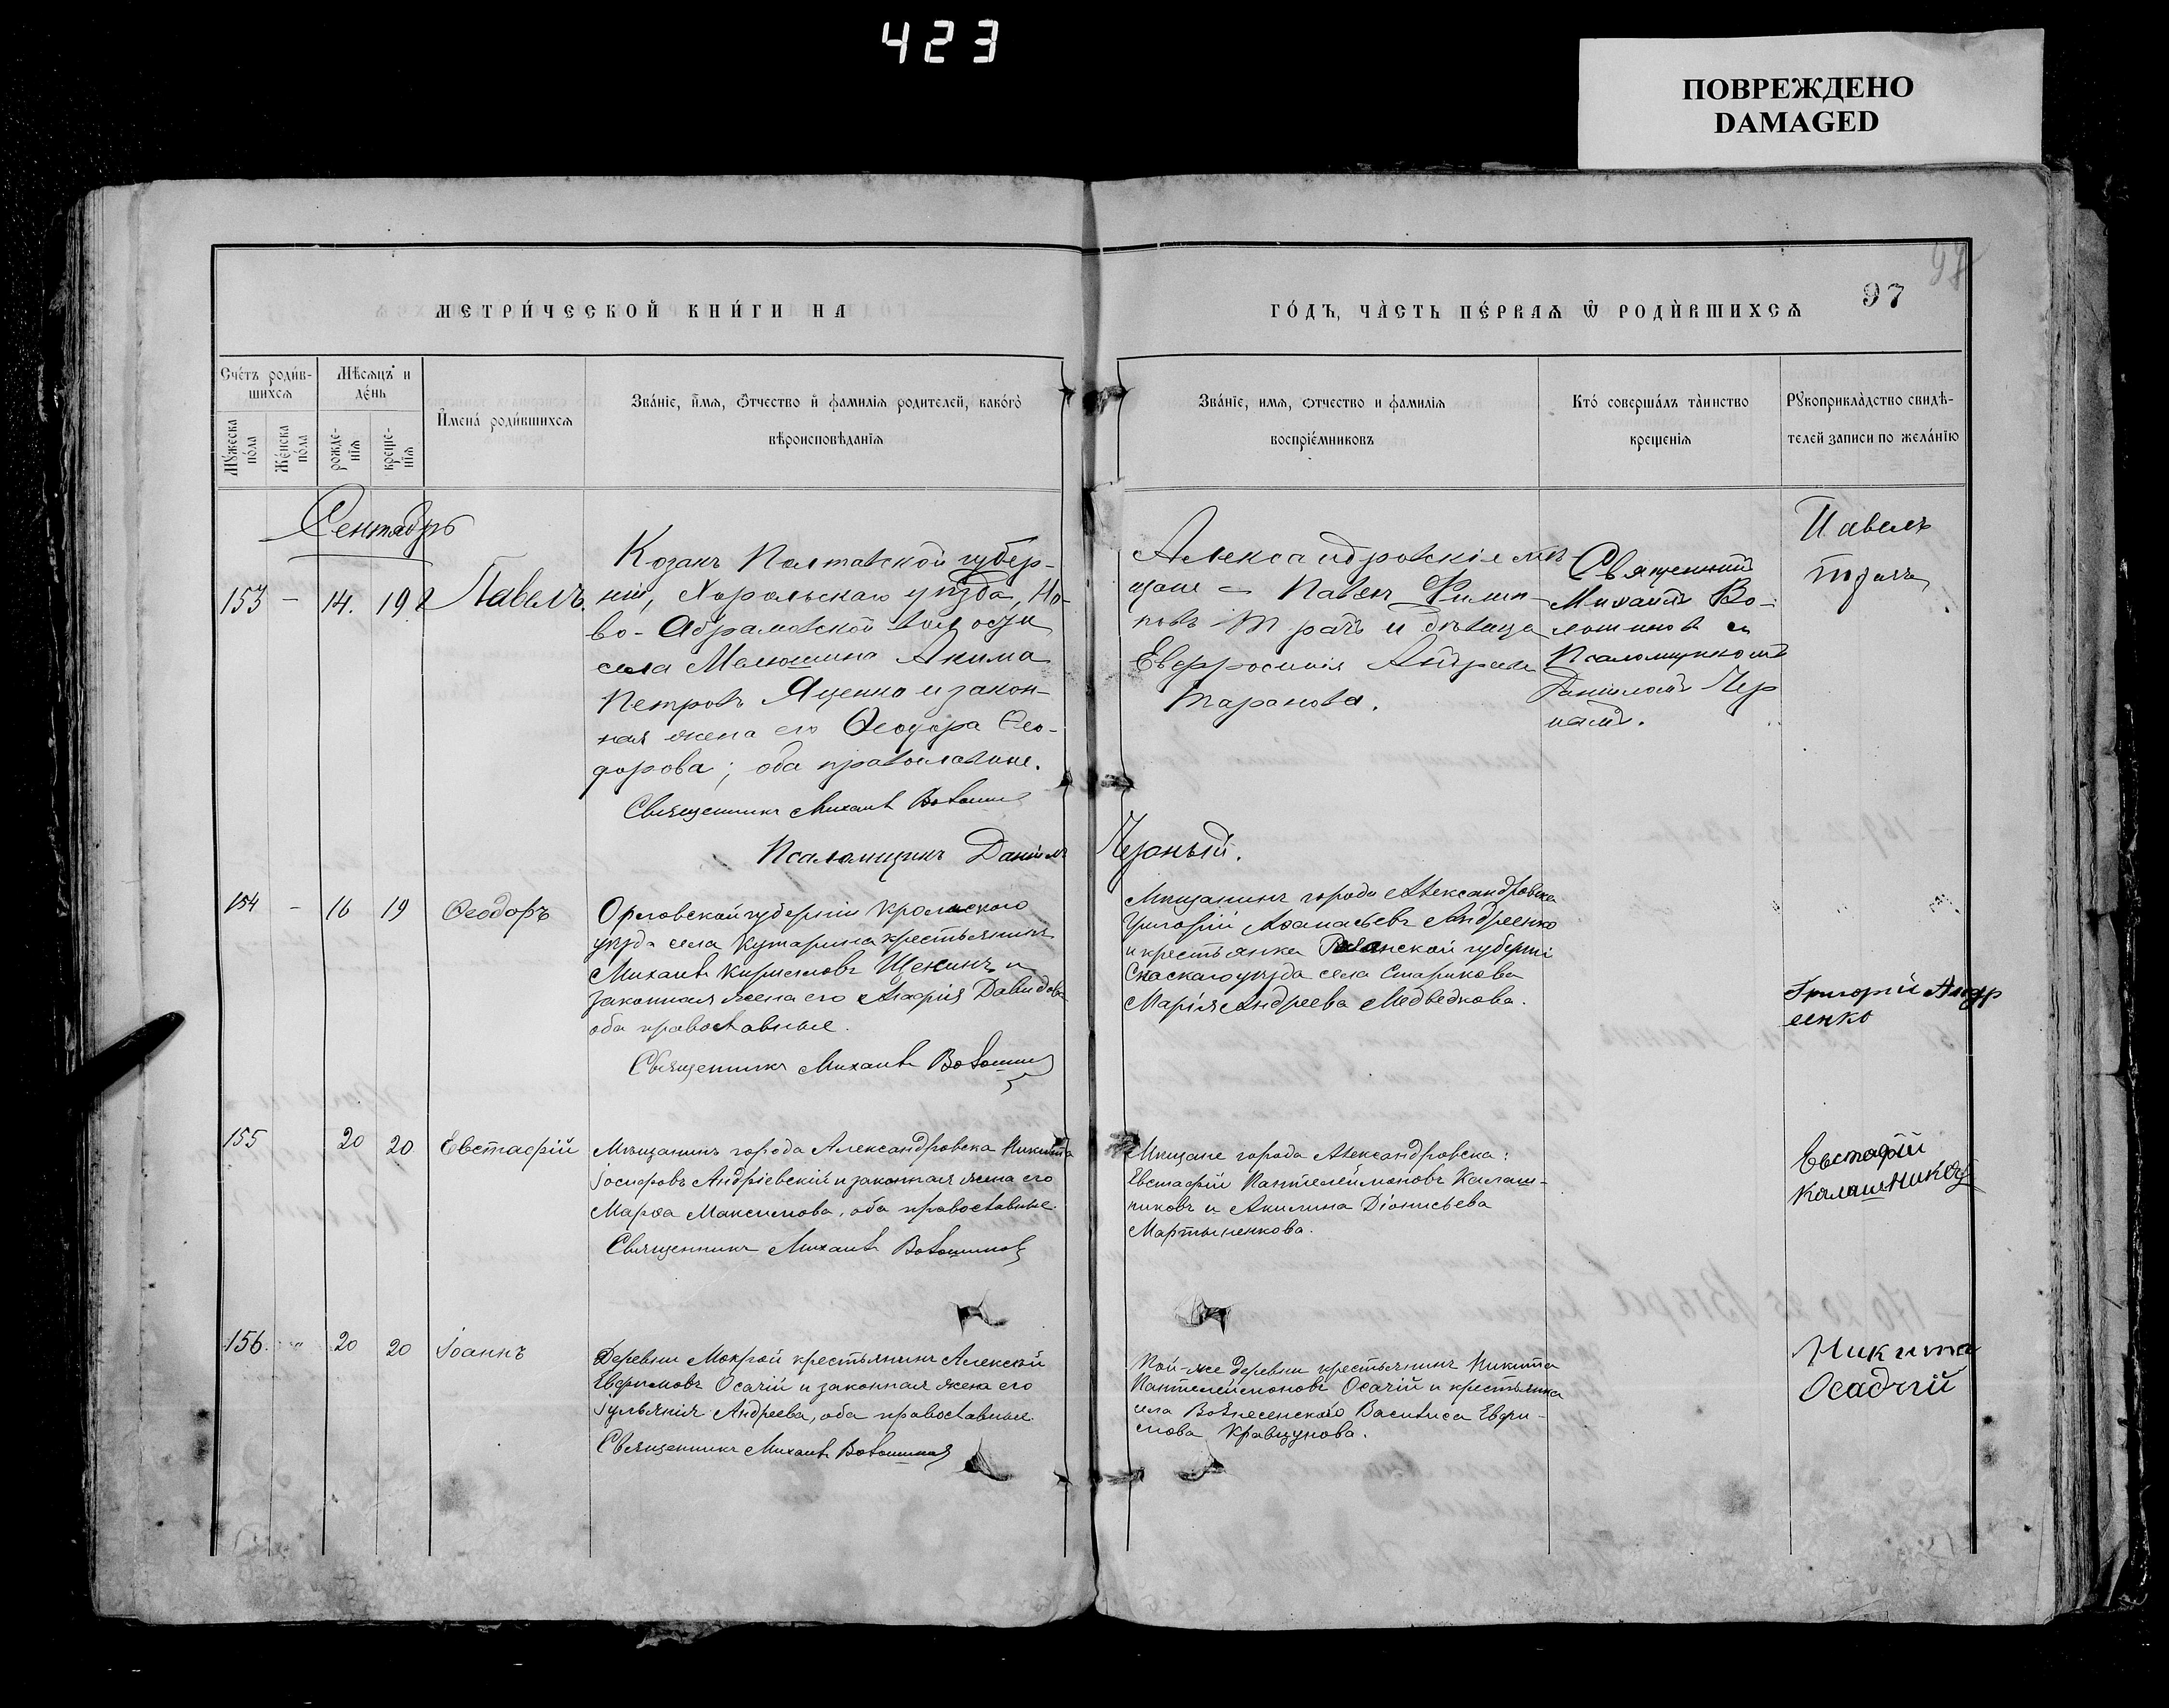 423
ПОВРЕЖДЕНО
DAMAGED
97
МЕТРИ́ЧЕСКОЙ КНИ́ГИ НА
ГО́ДЪ, ЧА̀СТЬ ПЕ́РВАѦ Ѿ РОДИ́ВШИХСѦ
Счéтъ роди́в-
шихсѧ
Мѣ́сѧцъ и
де́нь
Му́жеска
по́ла
Же́нска
по́ла
рожде-
нїѧ
креще-
нїѧ
И҆мена̀ роди́вшихсѧ
Зва́нїе, и҆́мѧ, ѻ҆́тчество и҆ фамилїѧ родителей, како́гѡ
вѣроисповѣданїѧ
Зва́нїе, имѧ, ѻтчество и фамилїѧ
воспрїе́мниковъ
Кто́ соверша́лъ та̀инство
крещенїѧ
Рꙋкоприкла́дство свидѣ-
телей записи по жела́нїю
Сентябрь
153 - 14. 19 Павелъ.
Козакъ Полтавской губер-
ніи, Хорольскаго уѣзда, Но-
во-Абрамовской волости
села Малюшина Акима
Петровъ Яценко и закон-
ная жена его Ѳеодора Ѳео-
дорова; оба православные.
Священникъ Михаилъ Волошинъ
Псаломщикъ Даніилъ Черный.
Александровскіе мѣ
щане - Павелъ Филип
повъ Ткачъ и дѣвица
Евфросинія Андреева
Таранова.
Священникъ
Михаилъ Во-
лошиновъ съ
Псаломщикомъ
Даніиломъ Чер
нымъ.
Павелъ
Ткачъ
154 - 16 19 Ѳеодоръ
Орловской губерніи Кромскаго
уѣзда села крестьянинъ
Михаилъ Кирилловъ Щекинъ и
законная жена его Агафія Давидова
оба православные.
Священникъ Михаилъ Волошин
Мѣщанинъ города Александровска
Григорій Аѳанасьевъ Андреенко
и крестьянка Рязанской губерніи
Спаскаго уѣзда села Старикова
Марія Андреева Медведкова.
Григорій Андр
еенко
155 20 20 Евстафій
Мѣщанинъ города Александровска Никита
Іосифовъ Андріевскій и законная жена его
Марѳа Максимова, оба православные.
Священникъ Михаилъ Волошиновъ
Мѣщане города Александровска:
Евстафій Пантелеймоновъ Калаш-
никовъ и Акилина Діонисьева
Мартыненкова.
Евстафій
Калашниковъ
156. " 20 20 Іоаннъ
Деревни Мокрой крестьянинъ Алексѣй
Евфимовъ Осачій и законная жена его
Іульянія Андреева, оба православные.
Священникъ Михаилъ Волошиновъ
Той-же деревни крестьянинъ Никита
Пантелеймоновъ Осачій и крестьянка
села Вознесенскаго Василиса Евфи-
мова Кравцунова.
Никита
Осадчій